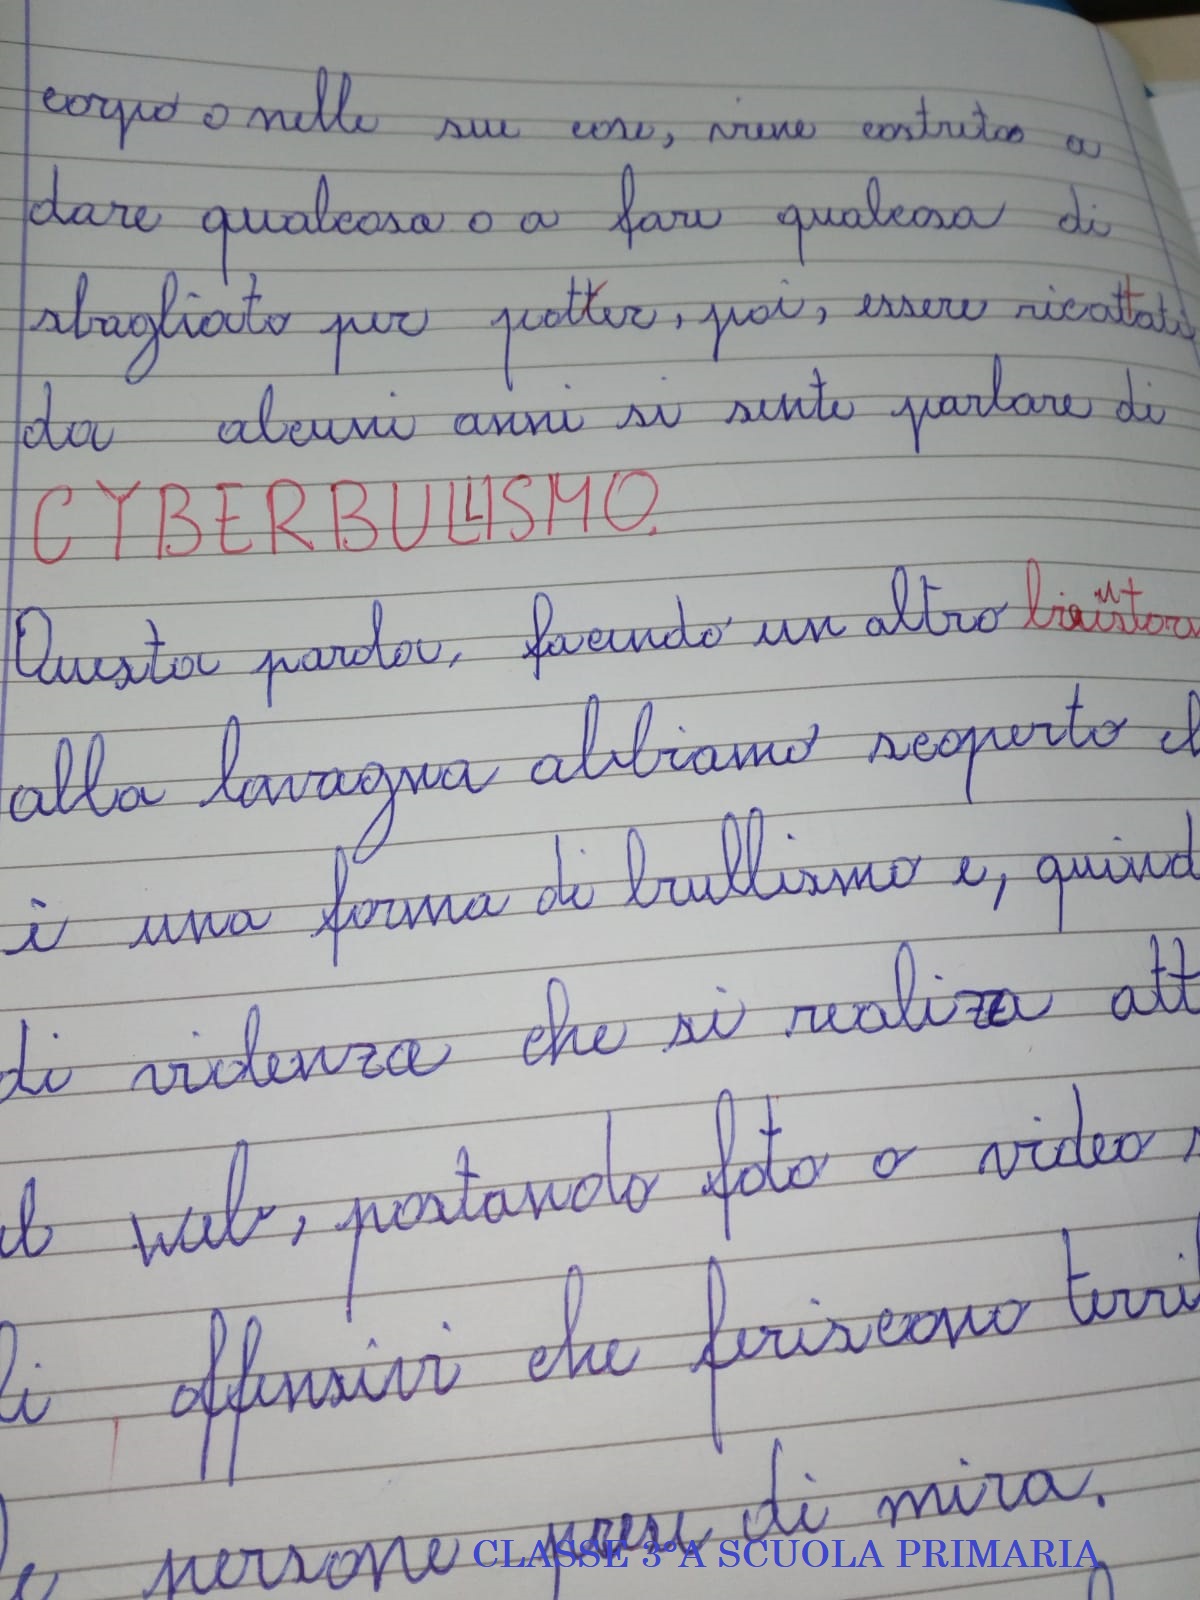 corpo o nelle sue cose, viene costretto a
dare qualcosa o a fare qualcosa di
sbagliato per potter, poi, essere ricattati
da alcuni anni si sente parlare di
CYBERBULLISMO.
Questa parola, facendo un altro
alla lavagna abbiamo scoperto
è una forma di bullismo e, quind
di violenza che si realizza att
web, postando foto o video
offensivi che feriscono terri
persone prese di mira.
CLASSE 3°A SCUOLA PRIMARIA